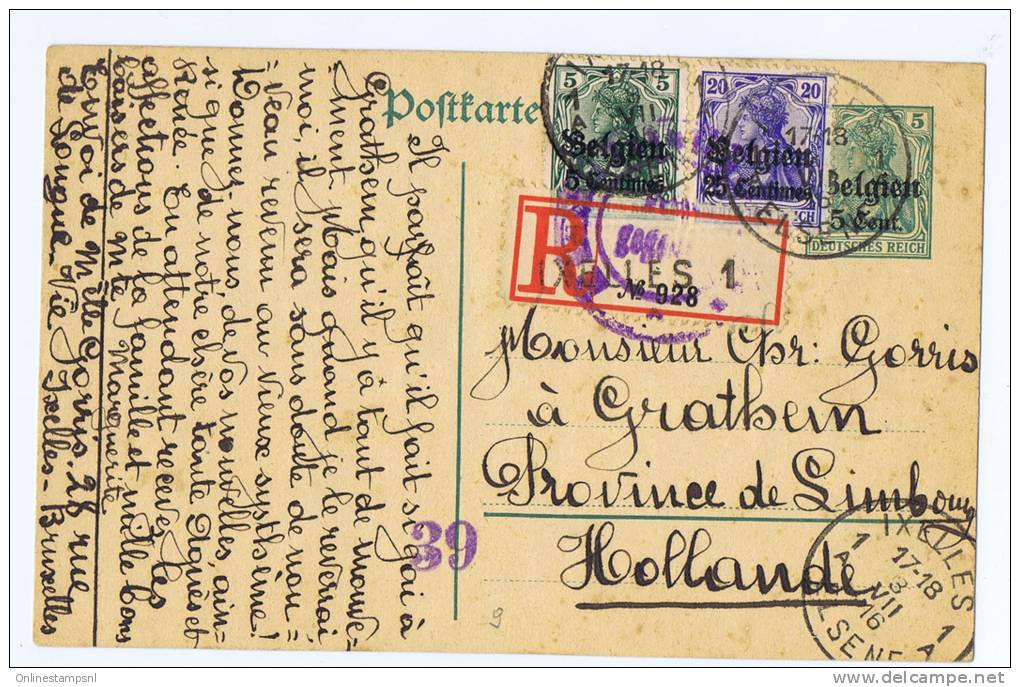 Postkarte
5
Belgien
5 Centimes
20 20
Belgien
25 Centimes
5
Belgien
5 Cent.
DEUTSCHES REICH
17-18
VII
17-18
ELSENE
R
IXELLES 1
№ 928
Monsieur Chr: Gorris
à Grathem
Province de Limbourg
Hollande
IXELLES
17-18
3
VII
16
1 A
1 A
ELSENE
39
9
Il paraît qu'il fait si gai à
Grathem, qu'il y a tant de mouve-
ment. Mais quand je le reverrai
moi, il sera sans doute de nou=
=veau revenu au vieux systhème!
Donnez-nous, de vos nouvelles, ain-
si que de notre chère tante Agnès et
Renée. En attendant recevez les
affections de la famille et mille bons
baisers de Mte Marguerite
Envoi de Melle Gorris. 28 rue
de Longue Vie Ixelles - Bruxelles
Onlinestampsnl